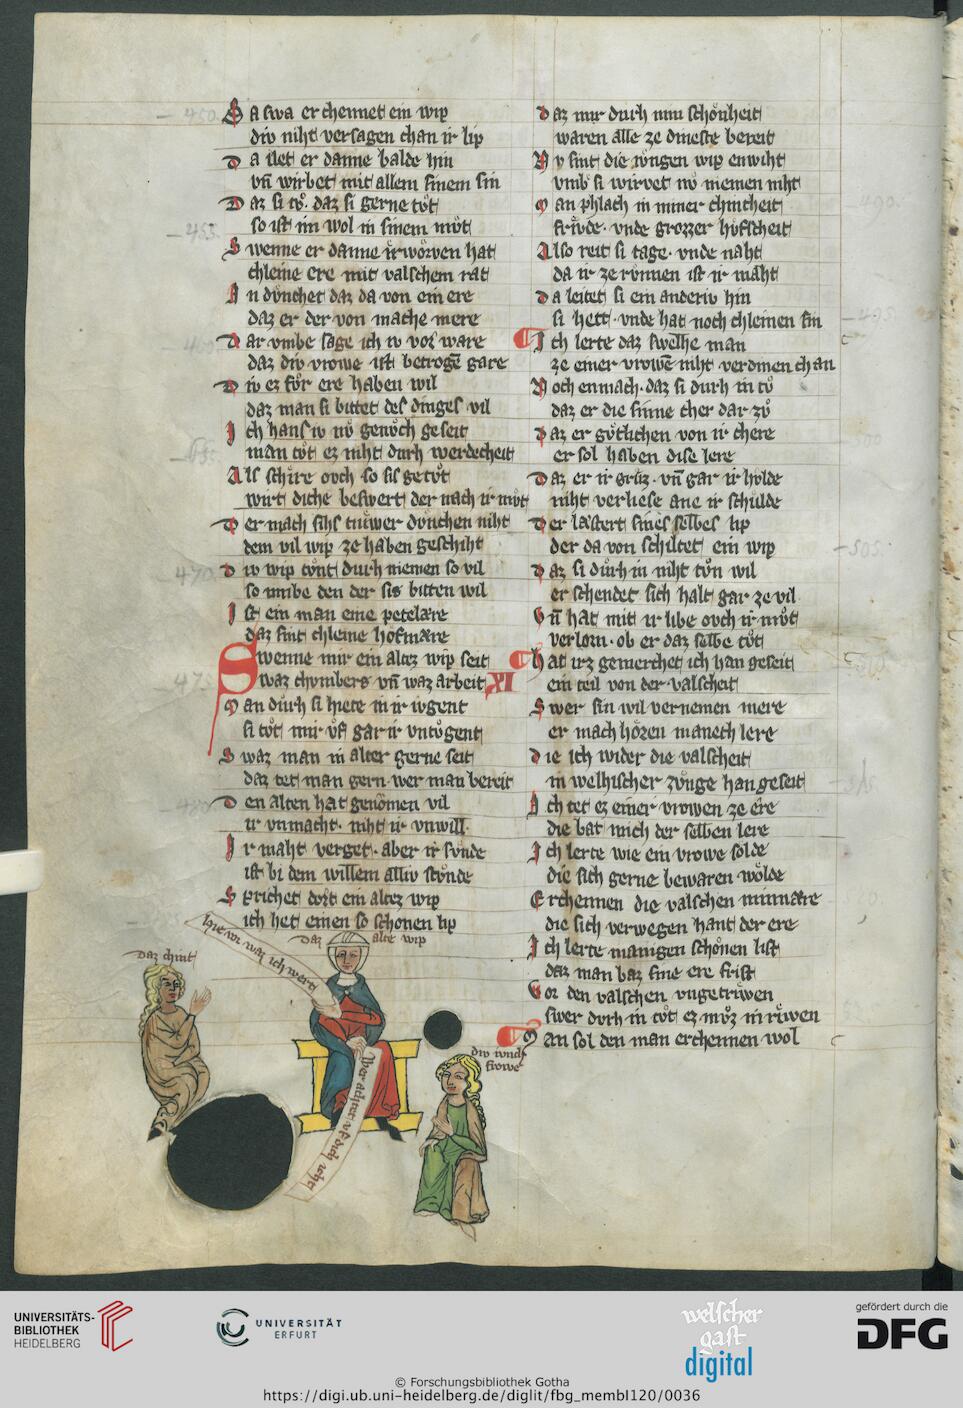 Da swa er chennet ein wip
div niht versagen chan ir lip
Da ilet er danne balde hin
vn̄ wirbet mit allem sinem sin
Daz si tv̊. daz si gerne tv̊t
so ist im wol in sinem mv̊t
Swenne er danne erworven hat
chleine ere mit valschem rat
In dvnchet daz da von ein ere
daz er der von mache mere
Dar vmbe sage ich iv vor ware
daz div vrowe ist betrogē gare
Div ez fv̊r ere haben wil
daz man si bittet des dinges vil
Ich hans iv nv genv̊ch geseit
man tv̊t ez niht durh werdecheit
Als schire ovch so sis getv̊t
wirt diche beswert der nach ir mv̊t
Der mach sihs tiuwer dvnchen niht
dem vil wip ze haben geschiht
Div wip tv̊nt durh niemen so vil
so umbe den der sis bitten wil
Ist ein man eine petelære
daz sint chleine hofmære
Swenne mir ein altez wip seit
waz chvmbers vn̄ waz arbeit
Man durh si hiete in ir ivgent
si tv̊t mir vf gar ir vntvgent
Swaz man in alter gerne seit
daz tet man gern. wer man bereit
Den alten hat genomen vil
ir vnmacht. niht ir vnwill.
Ir maht verget. aber ir svnde
ist bi dem willem alliv stvnde
Sprichet dort ein altez wip
ich het einen so schonen lip
daz mir durh min schonheit
waren alle ze dineste bereit
Nv sint die ivngen wip enwiht
vmb si wirvet nv niemen niht
Man phlach in miner chintheit
frivde. vnde grozzer hufscheit
Also reit si tage. vnde naht
da ir zervnnen ist ir maht
Da leitet si ein anderiv hin
si hett. vnde hat noch chleinen sin
Ich lerte daz swelhe man
ze einer vrowē niht verdinen chan
Noch enmach. daz si durh in tv̊
daz er die sinne cher dar zv̊
Daz er gv̊tlichen von ir chere
er sol haben dise lere
Daz er ir grv̊z. vn̄ gar ir hulde
niht verliese ane ir schulde
Der lastert sines selbes lip
der da von schiltet ein wip
Daz si durh in niht tv̊n wil
er schendet sich halt gar ze vil
Vn̄ hat mit ir libe ovch ir mv̊t
verlorn. ob er daz selbe tv̊t
Hat irz gemerchet ich han geseit
ein teil von der valscheit
Swer sin wil vernemen mere
er mach hôren manech lere
Die ich wider die valscheit
in welhischer zvnge han geseit
Ich tet ez einer vrowen ze ere
die bat mich der selben lere
Ich lerte wie ein vrowe solde
die sich gerne bewaren wolde
Erchennen die valschen minnære
die sich verwegen hant der ere
Ich lerte manigen schonen list
daz man baz sine ere frist
Vor den valschen vngetriwen
swer dvrh in tv̊t ez mv̊z in riwen
Man sol den man erchennen wol
daz chint
daz alte wip
div ivnch frowe
450.
455.
470
475
490.
500
505.
UNIVERSITÄTS-
BIBLIOTHEK
HEIDELBERG
UNIVERSITÄT
ERFURT
welscher
gast
digital
gefördert durch die
DFG
© Forschungsbibliothek Gotha
https://digi.ub.uni-heidelberg.de/diglit/fbg_membI120/0036